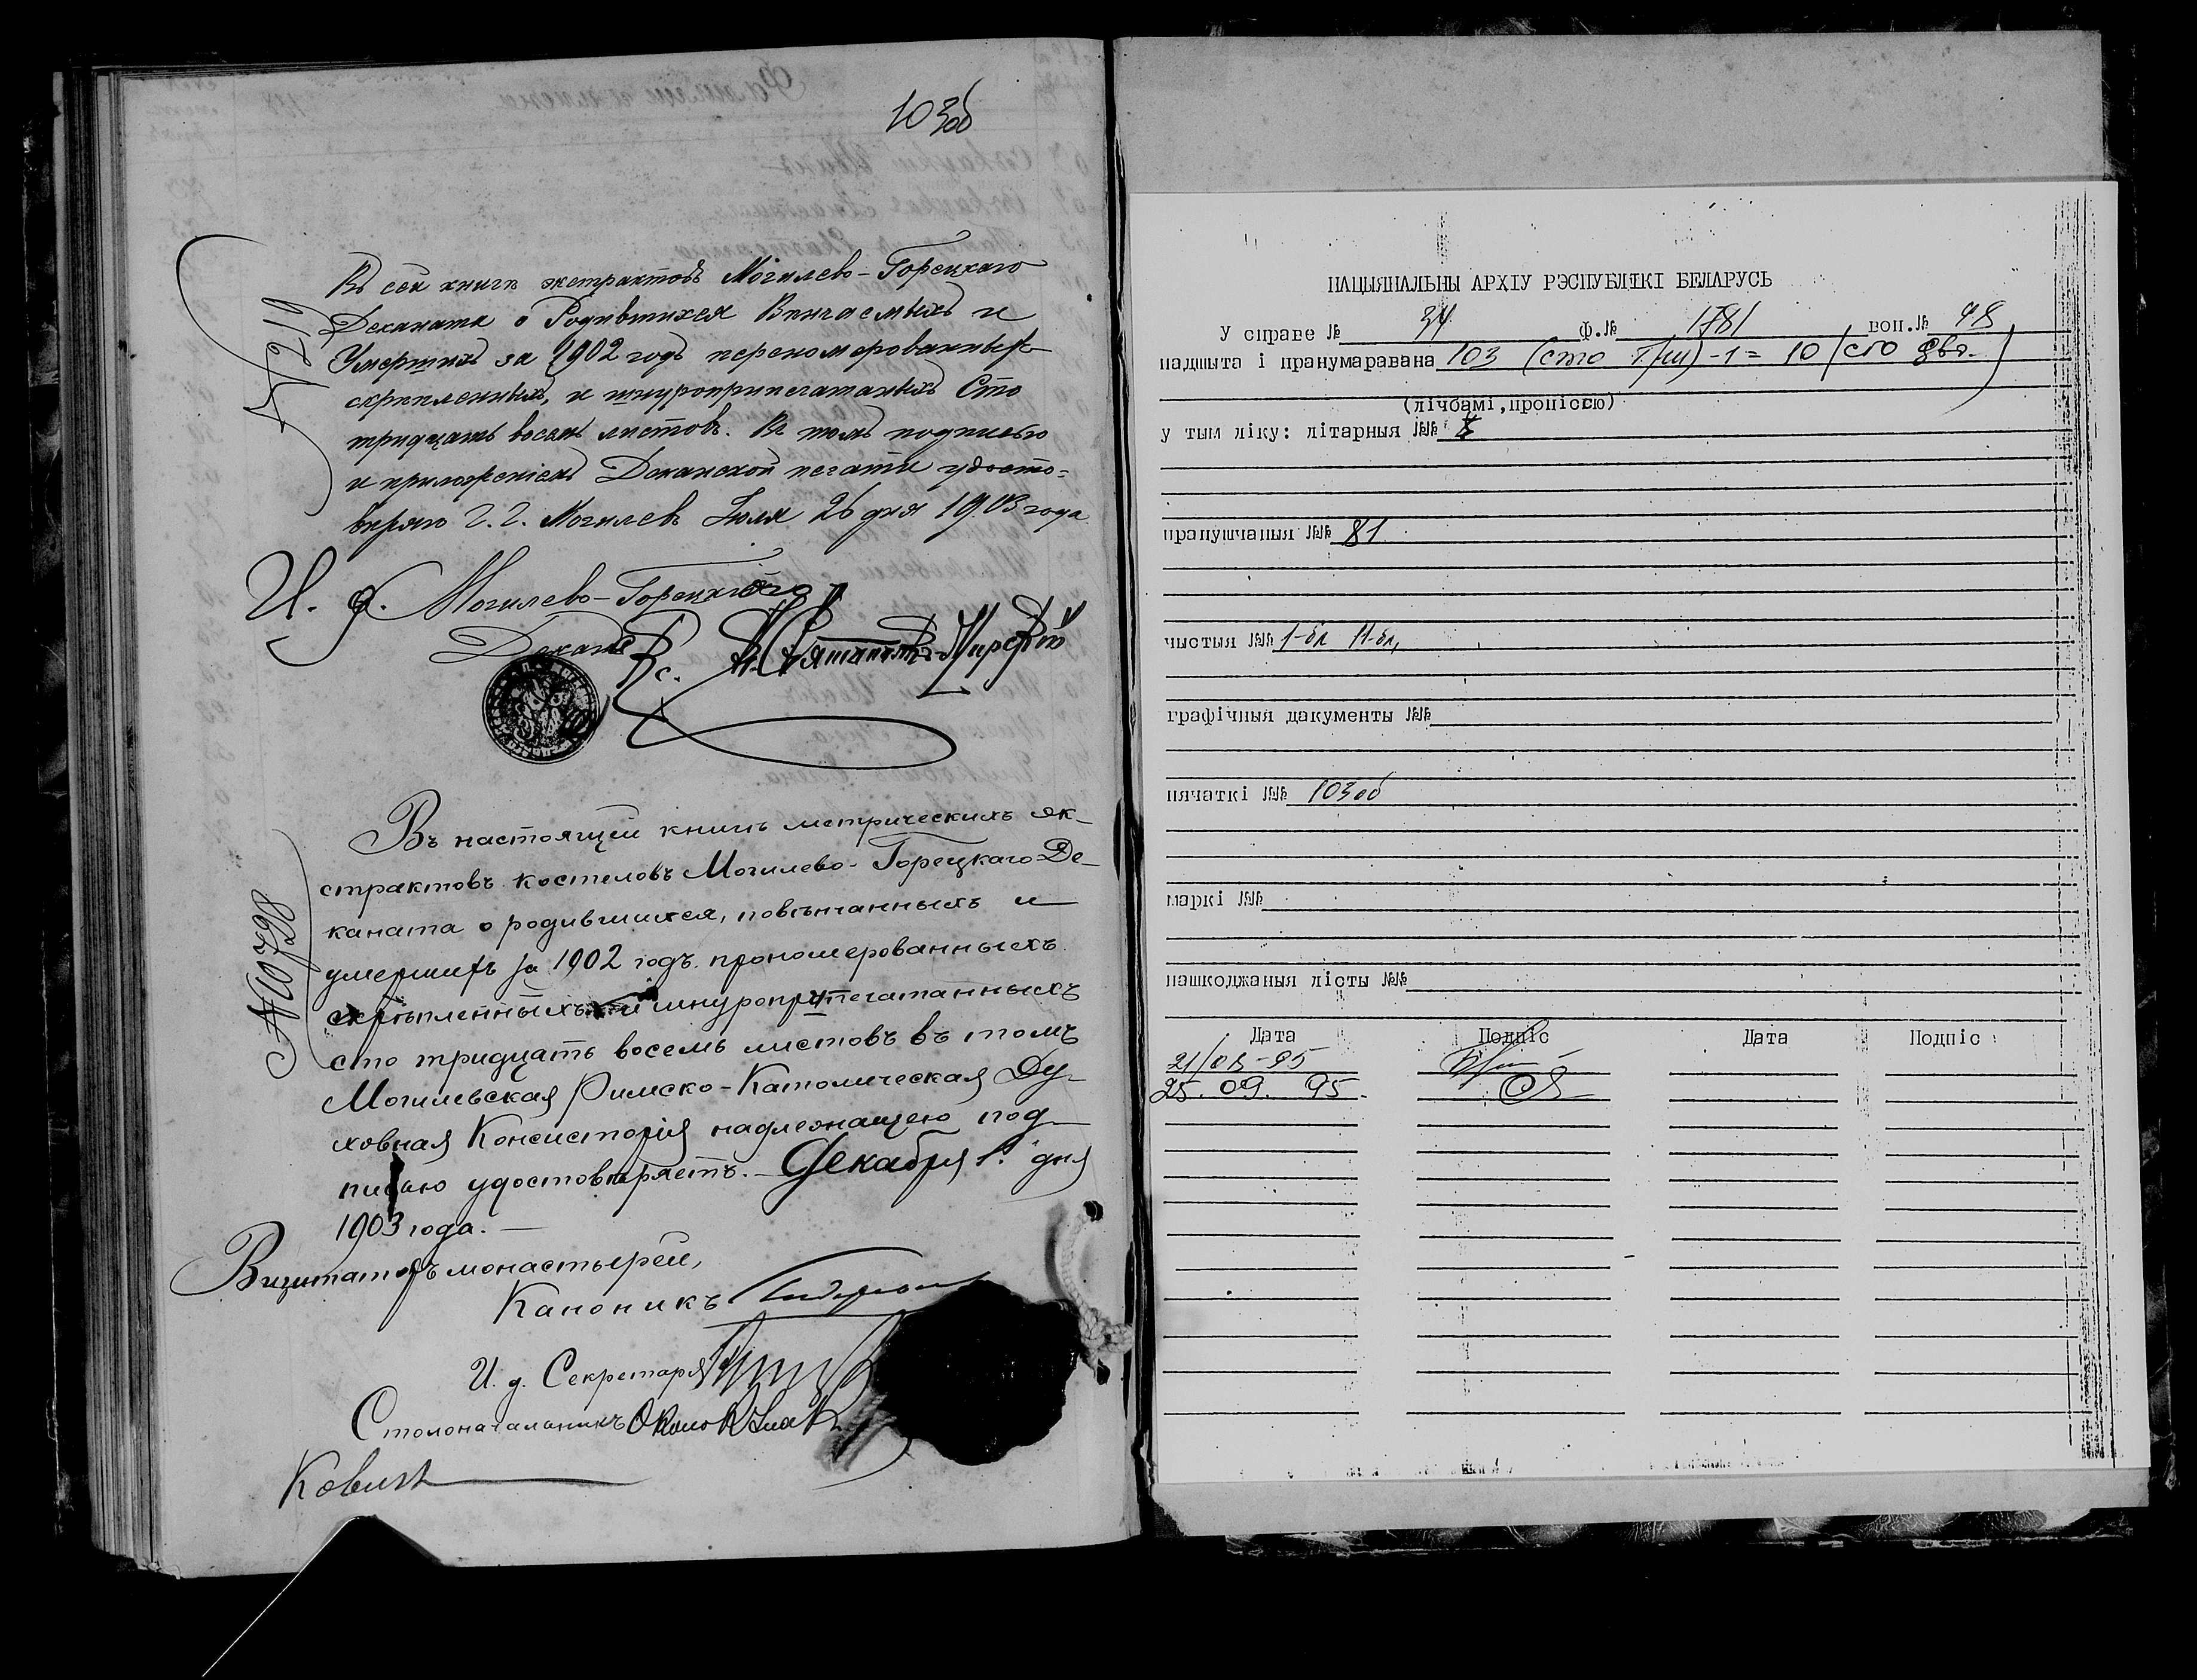 103об
№ 219
Въ сей книгѣ экстрактовъ Могилево-Горецкаго
Деканата о Родившихся Вѣнчаемыхъ и
Умершихъ за 1902 годъ перономерованныхъ
скрѣпленныхъ, и шнуроприпечатаныхъ Сто
тридцать восемь листовъ. Въ томъ подписью
и приложеніемъ Деканской печати удосто-
вѣряю г. г. Могилевъ Іюля 26 дня 1903 года
И. д. Могилево-Горецкаго
Декана Кс.
№ 10798
Въ настоящей книгѣ метрическихъ эк-
страктовъ костеловъ Могилево-Горецкаго Де-
каната о родившихся, повѣнчанныхъ и
умершихъ за 1902 годъ прономерованныхъ
скрѣпленныхъ и шнуроприпечатанныхъ
сто тридцать восемь листовъ въ томъ
Могилевская Римско-Католическая Ду-
ховная Консисторія надлежащею под-
писью удостовѣряетъ. Декабря 1. дня
1903 года.
Визитаторъ монастырей,
Каноникъ
И. д. Секретаря
Столоначальникъ
НАЦЫЯНАЛЬНЫ АРХІЎ РЭСПУБЛІКІ БЕЛАРУСЬ
У справе № 34 ф.№ 1781 воп.№ 48
падшыта і пранумаравана 103 (сто три) -1= 10 (сто два.)
(лічбамі, пропіссю)
у тым ліку: літарныя №№
прапушчаныя №№ 81
чыстыя №№ 1-бл 11-бл,
графічныя дакументы №№
пячаткі №№ 103об
маркі №№
пашкоджаныя лісты №№
Дата Подпіс Дата Подпіс
21/08-95
25.09.95.